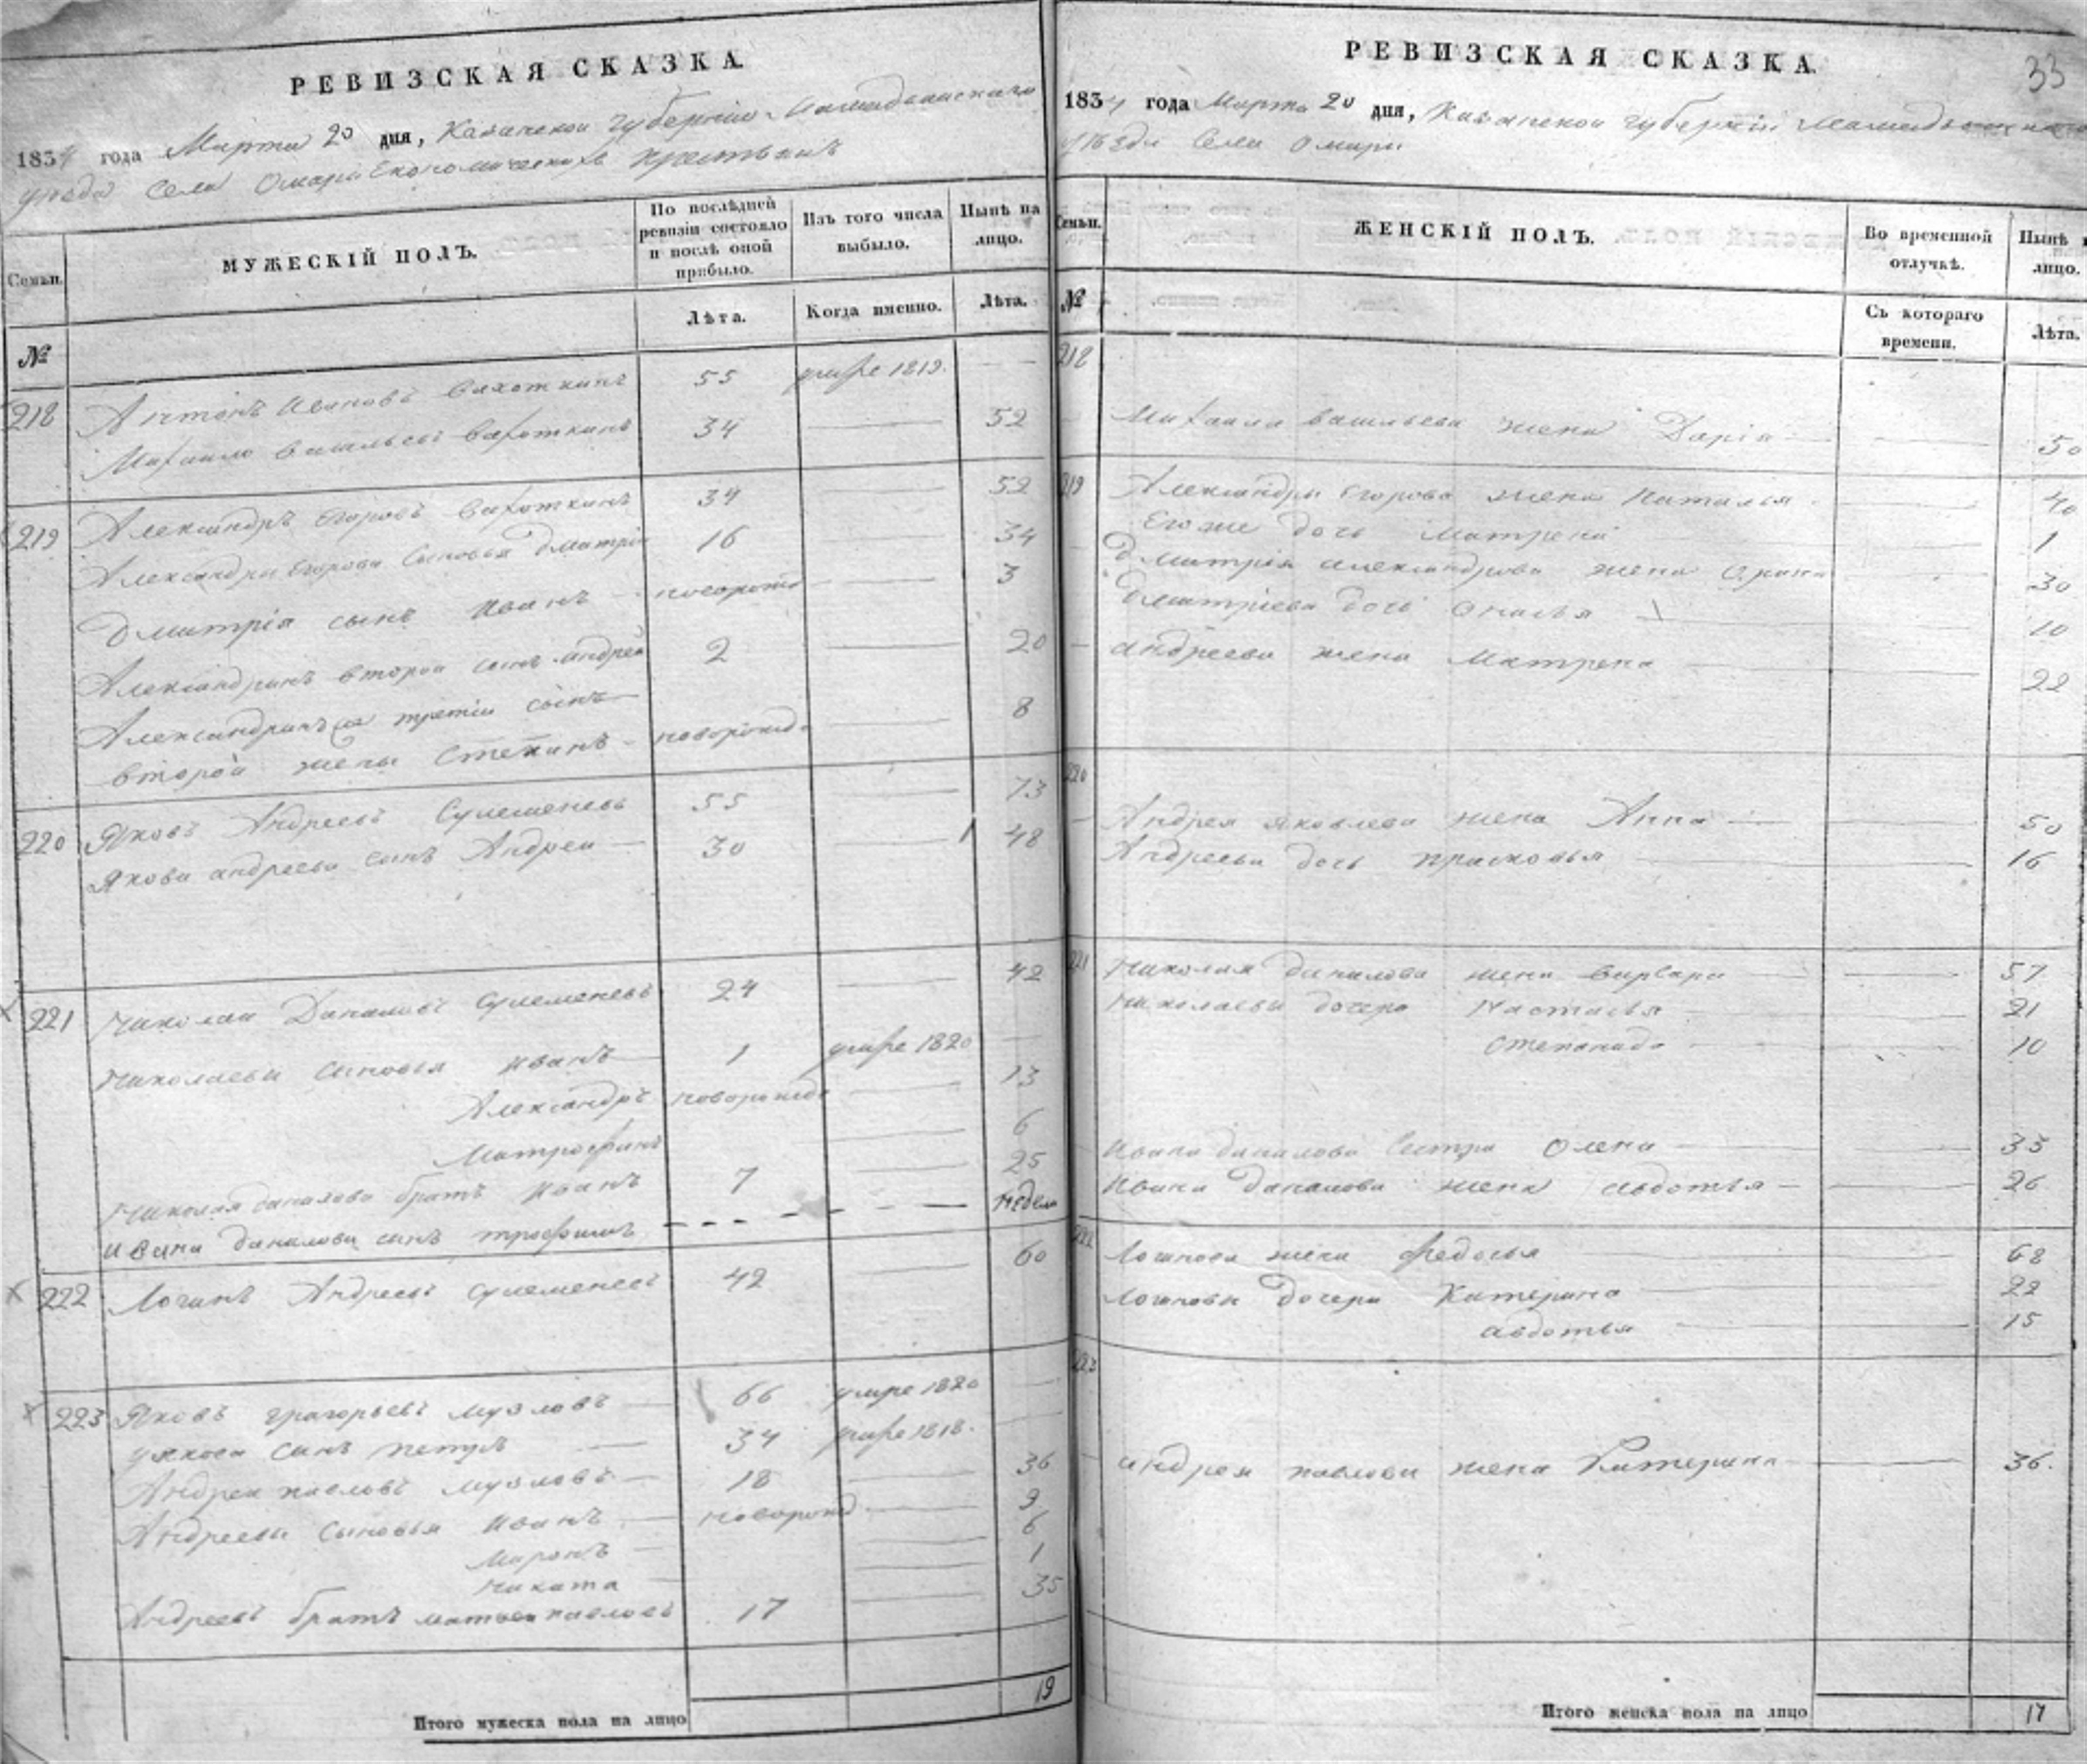 РЕВИЗСКАЯ СКАЗКА.
1834 года Марта 20 дня, Казанской губернии Мамадышскаго
уезда Села Омари Економическихъ крестьянъ
Семьи.
МУЖЕСКІЙ ПОЛЪ.
По послѣдней ревизіи состояло и послѣ оной прибыло.
Изъ того числа выбыло.
Нынѣ на лицо.
№
Лѣта.
Когда именно.
Лѣта.
218 Антонъ Ивановъ 55 умре 1819.
Михайло Васильевъ 34 52
219 Александръ Егоровъ 34 52
Александры Егорова Сыновья Дмитрій 16 34
Дмитрія сынъ Иванъ новорожд 3
Александринъ второй сынъ Андрей 2 20
Александринъ третій сынъ
второй жены Степанъ новорожд. 8
220 Яковъ Андреевъ Сулеменевъ 55 73
Якова андреева сынъ Андрей 30 48
221 Николай Даниловъ Сулеменевъ 24 42
Николаевы сыновья Иванъ 1 умре 1820
Александръ новорожд 13
Митрофанъ 6
Николая данилова братъ Иванъ 7 25
Ивана данилова сынъ трофимъ недели
222 Логинъ Андреевъ Сулеменевъ 42 60
223 Яковъ григорьевъ Музловъ 66 умре 1820
у якова сынъ петръ 34 умре 1818.
Андрей павловъ Музловъ 18 36
Андреевы Сыновья Иванъ новорожд 9
Миронъ 6
Никита 1
Андреевъ братъ матвей павловъ 17 35
19
Итого мужеска пола на лицо
РЕВИЗСКАЯ СКАЗКА.
33
1834 года Марта 20 дня, Казанской губерніи Мамадышскаго
уѣзда Села Омари
Семьи.
ЖЕНСКІЙ ПОЛЪ.
Во временной отлучкѣ.
Нынѣ на лицо.
№
Съ котораго времени.
Лѣта.
218
Михаила васильева жена Дарія 50
219 Александры Егорова жена Наталья 40
Его же дочь Матрена 1
Дмитрія александрова жена Орина 30
Дмитріева дочь 10
андреева жена Матрена 22
220
Андрея яковлева жена Анна 50
Андреева дочь прасковья 16
221 Николая данилова жена варвара 57
Николаевы дочери Настасья 21
степанида 10
Ивана данилова Сестра Олена 35
Ивана данилова жена авдотья 26
222 Логинова жена федосья 62
Логиновы дочери Катерина 22
авдотья 15
223
андрея павлова жена Катерина 36.
17
Итого женска пола на лицо